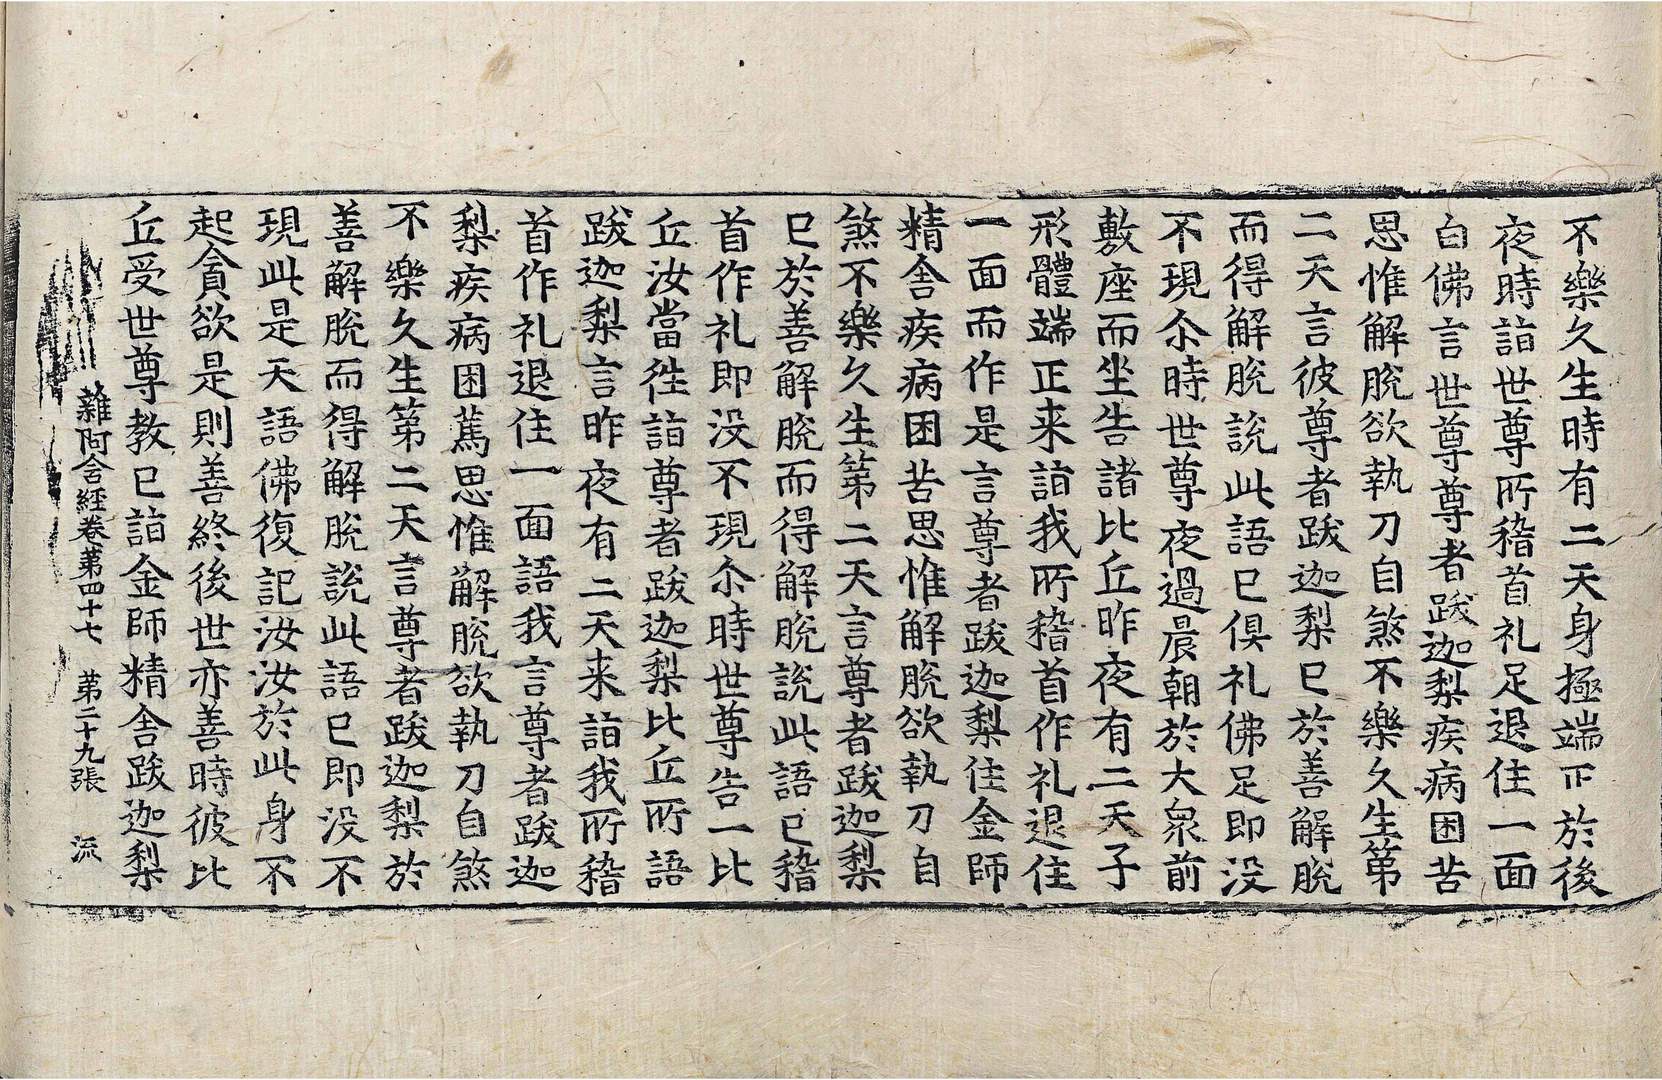 不樂久生時有二天身極端正於後
夜時詣世尊所稽首礼足退住一面
白佛言世尊尊者跋迦梨疾病困苦
思惟解脫欲執刀自煞不樂久生第
二天言彼尊者跋迦梨已於善解脫
而得解脫說此語已俱礼佛足即没
不現尒時世尊夜過晨朝於大衆前
敷座而坐告諸比丘昨夜有二天子
形體端正来詣我所稽首作礼退住
一面而作是言尊者跋迦梨住金師
精舍疾病困苦思惟解脫欲執刀自
煞不樂久生第二天言尊者跋迦梨
已於善解脫而得解脫說此語已稽
首作礼即没不現尒時世尊告一比
丘汝當往詣尊者跋迦梨比丘所語
跋迦梨言昨夜有二天来詣我所稽
首作礼退住一面語我言尊者跋迦
梨疾病困篤思惟解脫欲執刀自煞
不樂久生第二天言尊者跋迦梨於
善解脫而得解脫說此語已即没不
現此是天語佛復記汝汝於此身不
起貪欲是則善終後世亦善時彼比
丘受世尊教已詣金師精舍跋迦梨
雜阿含經卷第四十七 第二十九張 流